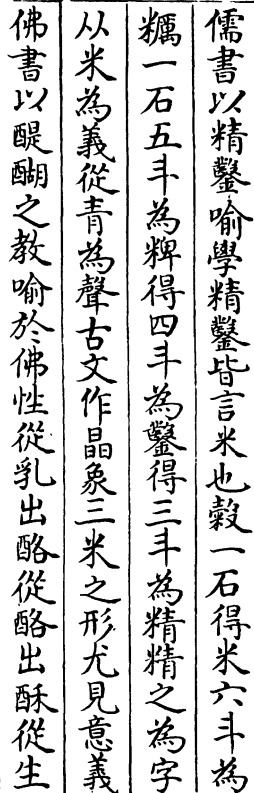 儒書以精鑿喻學精鑿皆言米也穀一石得米六斗為
糲一石五斗為粺得四斗為鑿得三斗為精精之為字
从米為義從青為聲古文作晶象三米之形尤見意義
佛書以醍醐之教喻於佛性從乳出酪從酪出酥從生